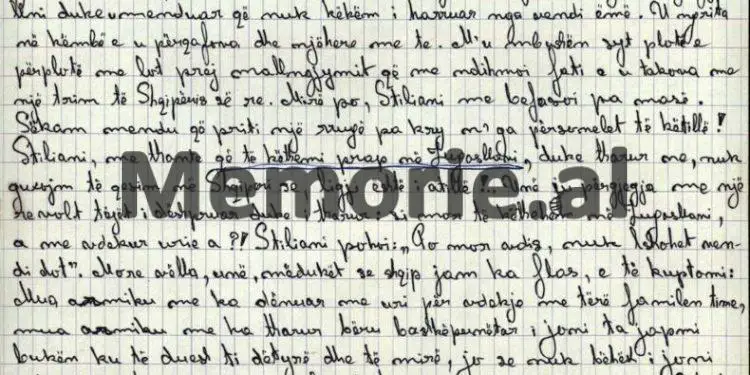 duke menduar që nuk këkëm i harruar nga vendi ëmë. U ngrita
në këmbë e u përqafova dhe njëhere me te. M'u mbushën syt plot e
përplotë me lot prej mallngjymit që me ndihmoi fati e u takova me
një trim të Shqipëris së re. Mirë po, Stiliani me befasoi pa masë.
Sëkam mendu që priti një rrugë pa kry n'ga përsonelet të këtillë!
Stiliani, me thante që të këthemi prap në Jugosllavi, duke tharur me, nuk
guxojm të qesim në Shqipëri se ligji është i atillë!.. Unë ju përgjegja me një
revolt tëjet i dëshpruar duke tharur: si mor të këthehem në Jugosllavi,
a me vdekur urie a?! Stiliani pohoi: „Po mor vdis, nuk lshohet ven-
di dot". More vëlla, unë, mëduket se shqip jam ka flas, e të kuptomi:
Mua armiku me ka dënuar me uri për vdekje me tërë familen time,
mua armiku me ka tharur bëru bashkëpunëtar i joni ta japmi
bukën ku të duesh ti dëtyrë dhe të mirë, jo se nuk bëhësh i joni
Memorie.al